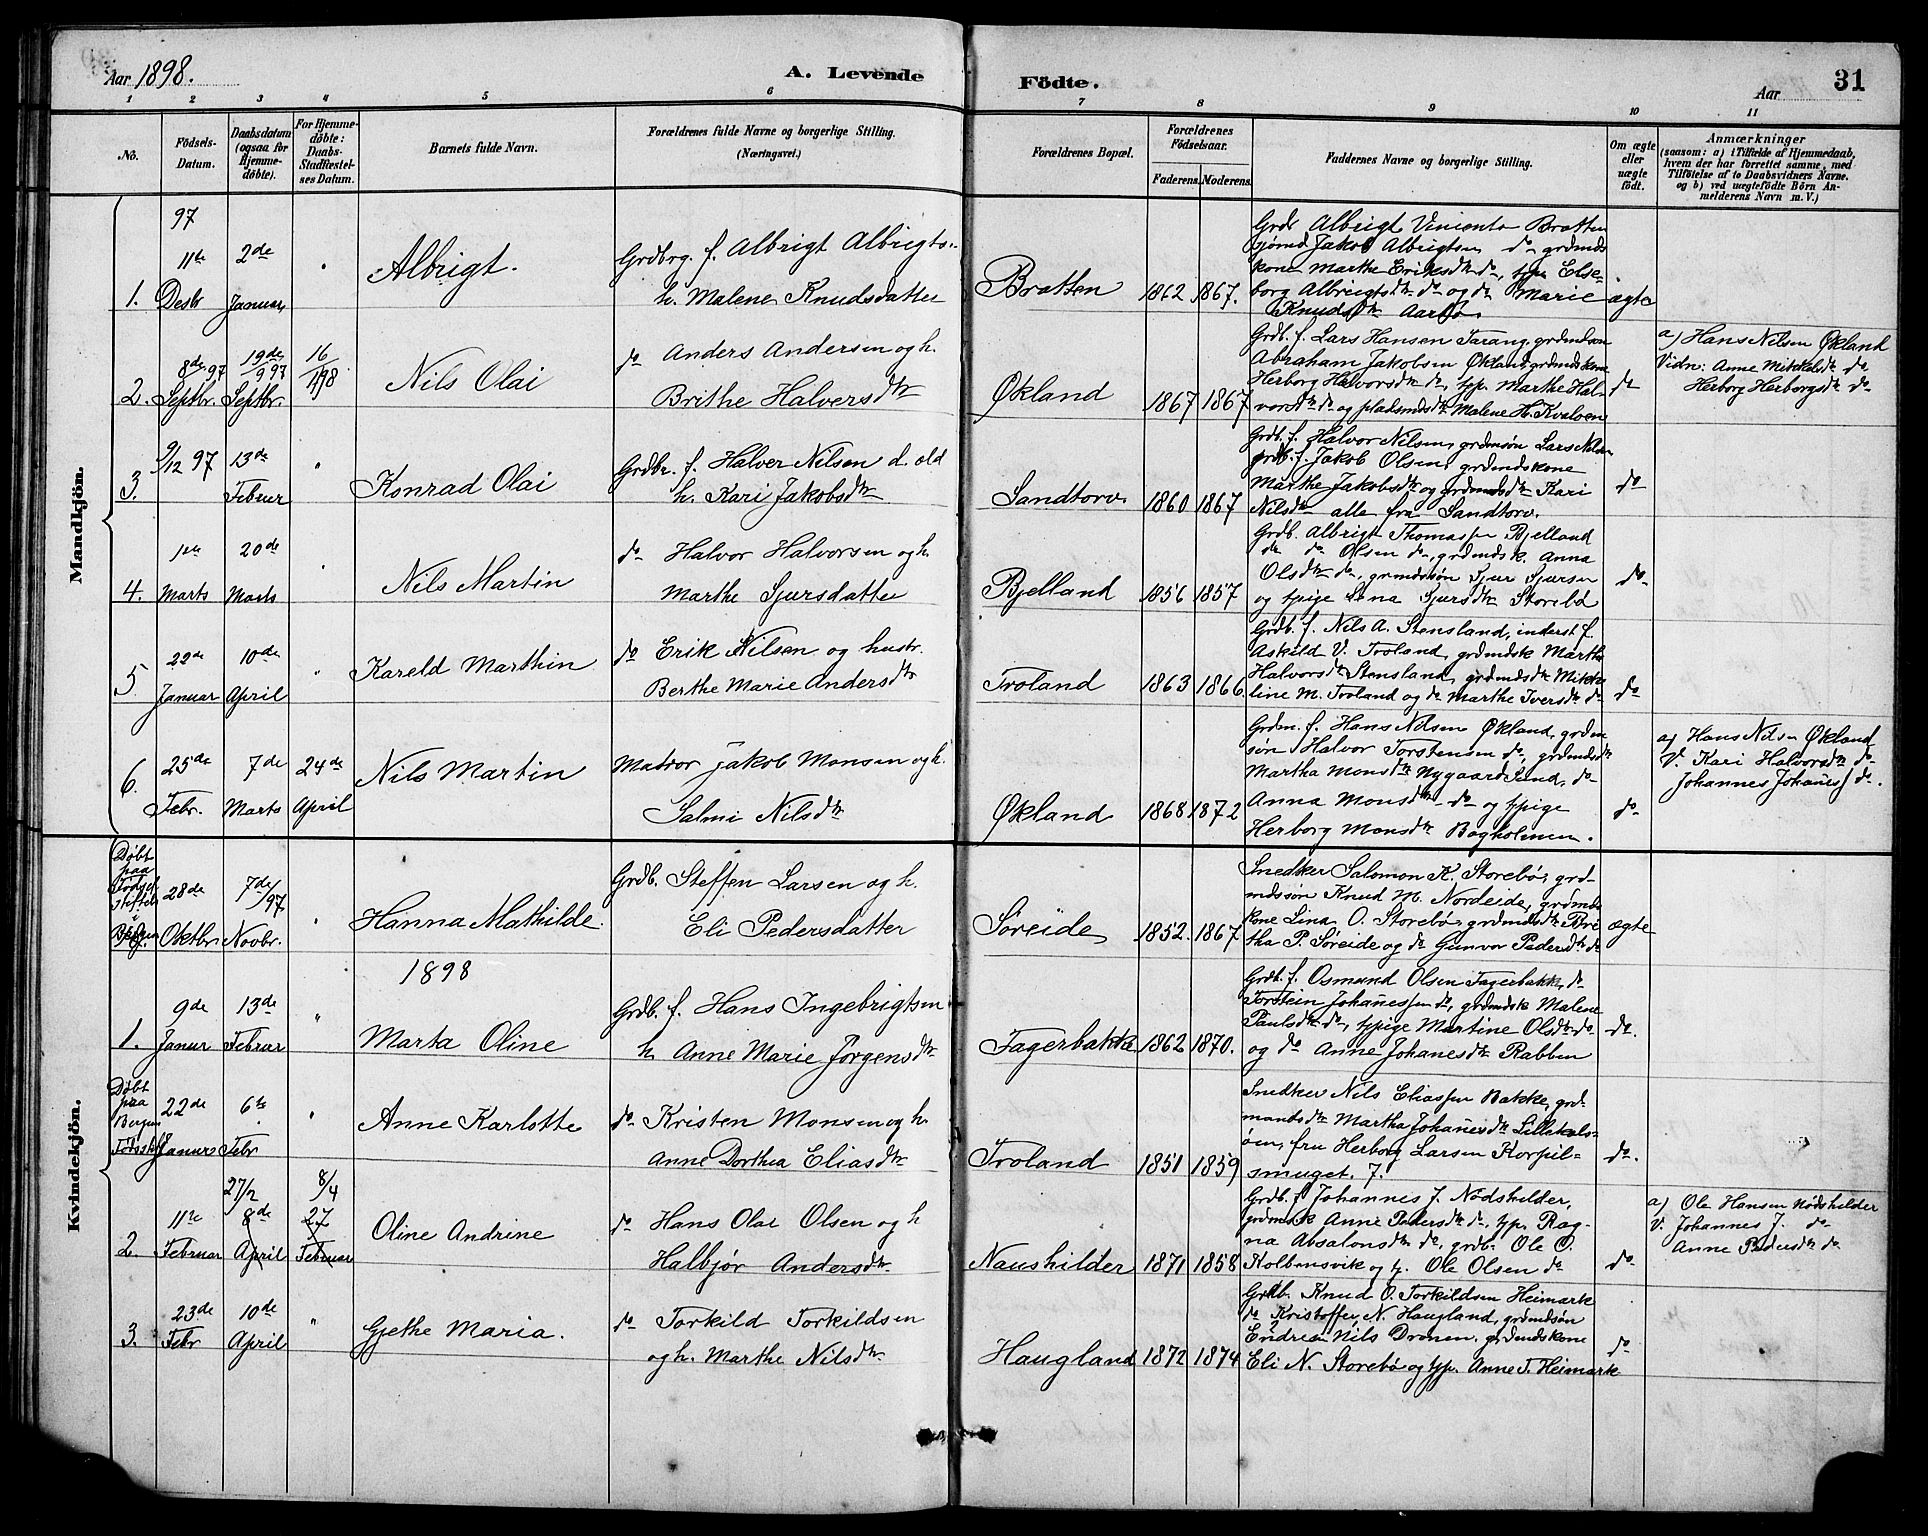 Aar 1898.
A. Levende
Födte.
Aar
31
1 2 3 4 5 6 7 8 9 10 11
No.
Födsels-
Datum.
Daabsdatum
(ogsaa for
Hjemme-
döbte).
For Hjemme-
döbte:
Daabs-
Stadfæstel-
ses Datum.
Barnets fulde Navn.
Forældrenes fulde Navne og borgerlige Stilling.
(Næringsvei.)
Forældrenes Bopæl.
Forældrenes
Födselsaar.
Faderens. Moderens.
Faddernes Navne og borgerlige Stilling.
Om ægte
eller
uægte
födt.
Anmærkninger
(saasom: a) i Tilfælde af Hjemmedaab,
hvem der har forrettet samme, med
Tilföielse af to Daabsvidners Navne.
og b) ved uægtefödte Börn An-
melderens Navn m. V.)
Mandkjön.
97
1. 11te Desbr
2de Januar
Albrigt.
Grdbrg. f. Albrigt Albrigts..
h. Malene Knudsdatter
Bratten
1862 1867.
Grdb Albrigt Bratten
Jakob Albrigtsen do grdmds
kone Marthe Eriksdtr do, tpg Else-
borg Albrigtsdtr do og do Marie
Knudsdtr
ægte
2. 8de 97 Septbr.
19de/9 97 Septbr.
16/1 98
Nils Olai
do Anders Andersen og h.
Brithe Halversdtr
Økland
1867 1867
Grdb. f. Lars Hansen grdmdsøn
Abraham Jakobsen Økland, grdmdskone
Herborg Halvorsdtr do, tpp. Marthe Hal-
vorsdtr do og pladsmdsdtr Malene H. Kvaloen
do
a) Hans Nilsen Økland
Vidn: Anne Mikkelsdtr do
Herborg Herborgsdtr do
3. 9/12 97
13de Februr
"
Konrad Olai
Grdbr. f. Halver Nilsen d. old
h. Kari Jakobsdtr
Sandtorv
1860 1867
Grdb. f. Halvor Nilsen, grdmsøn Lars Nilsen
grdb. f. Jakob Olsen, grdmdskone
Marthe Jakobsdtr og grdmdsdtr Kari
Nilsdtr alle fra Sandtorv.
do
4. 1ste Marts
20de Marts
Nils Martin
do Halvor Halvorsen og h.
Marthe Sjursdatter
Bjelland
1856 1857
Grdb. Albrigt Thomassen Bjelland
do do Olsen do, grdmdsk. Anna
Olsdtr do, grmdssøn Sjur Sjursen
og tpige Lina Sjursdtr Storebö
do
5 22de Januar
10de April
"
Kareld Marthin
do Erik Nilsen og hustr.
Berthe Marie Andersdtr
Troland
1863 1866
Grdb. f. Nils A. Stensland, inderst f.
Askild V. Troland, grdmdsk Martha
Halvorsdtr Stensland, grdmdsdtr Mikka-
line M. Troland og do Marthe Iversdtr do
do
6. 25de Febr.
7de Marts
24de April
Nils Martin
Matror Jakob Monsen og h.
Salmi Nilsdtr
Økland
1868 1872
Grdm. f. Hans Nilsen Økland, grdm
søn Halvor Torstensen do, grdmdsdtr
Martha Monsdtr Nygaard Sund, do
Anna Monsdtr do og tpige
Herborg Monsdtr Bagholmen.
do
a) Hans Nilsen Økland
V. Kari Halvorsdtr do
Johannes Johanesf do.
Kvindekjön.
Døbt
paa
Fødsel
Stiftels
i
Bergen
28de Oktbr.
7de/97 Novbr.
"
Hanna Mathilde.
Grdb. Steffen Larsen og h.
Eli Pedersdatter
Søreide
1852. 1867
Snedker Salomon K. Storebö, grd-
mdssøn Knud M. Nordeide, grdmds
kone Lina O. Storebö, grdmdsdtr Bri-
tha P. Søreide og do Gunvor Pedersdtr do
ægte
1898
1. 9de Janur
13de Februar
"
Marta Oline
Grdb. f. Hans Ingebrigtsen
h. Anne Marie Jørgensdtr
Fagerbakke
1862 1870.
Grdb. f. Osmund Olsen Fagerbakke, do
Torstein Johanessen do, grdmdsk Malene
Paulsdtr do, tpige Martine Olsdtr do
og do Anne Johanesdtr Rabben
do.
Døbt
paa
Bergens
Fødsstif
22de Januar
6te Febr
"
Anne Karlotte
do Kristen Monsen og h.
Anne Dorthea Eliasdtr
Troland
1851 1859
Snedker Nils Eliassen Bakke, grd-
mandsdtr Martha Johanesdtr Lillekals-
øen, fru Herborg Larsen Korpil-
smuget. 7.
do.
2. 11te Februar
27/2 8de April
8/4 27 Februar
Oline Andrine
do Hans Olai Olsen og h
Halbjør Andersdtr.
Naushilder
1871 1858
Grdb. f Johannes J. Nødshilder,
grdmdsk Anne Pedersdtr do, tpp. Rag-
na Absalonsdtr do, grdb. Ole O.
Kolbensvik og y. Ole Olsen do
do
a) Ole Hansen Nødshilder
V. Johannes J. do
Anne Pedersdtr do
3. 23de Febr
10de April
"
Gjethe Maria.
do Torkild Torkildsen
og h. Marthe Nilsdtr.
Haugland
1872 1874
Grdb. Knud O. Torkildsen Heimark
do Kristoffer N. Haugland, grdmdsøn
Endrea Nils Drønen, grdmdskone
Eli N. Storebö og tpp. Anne T. Heimark
do